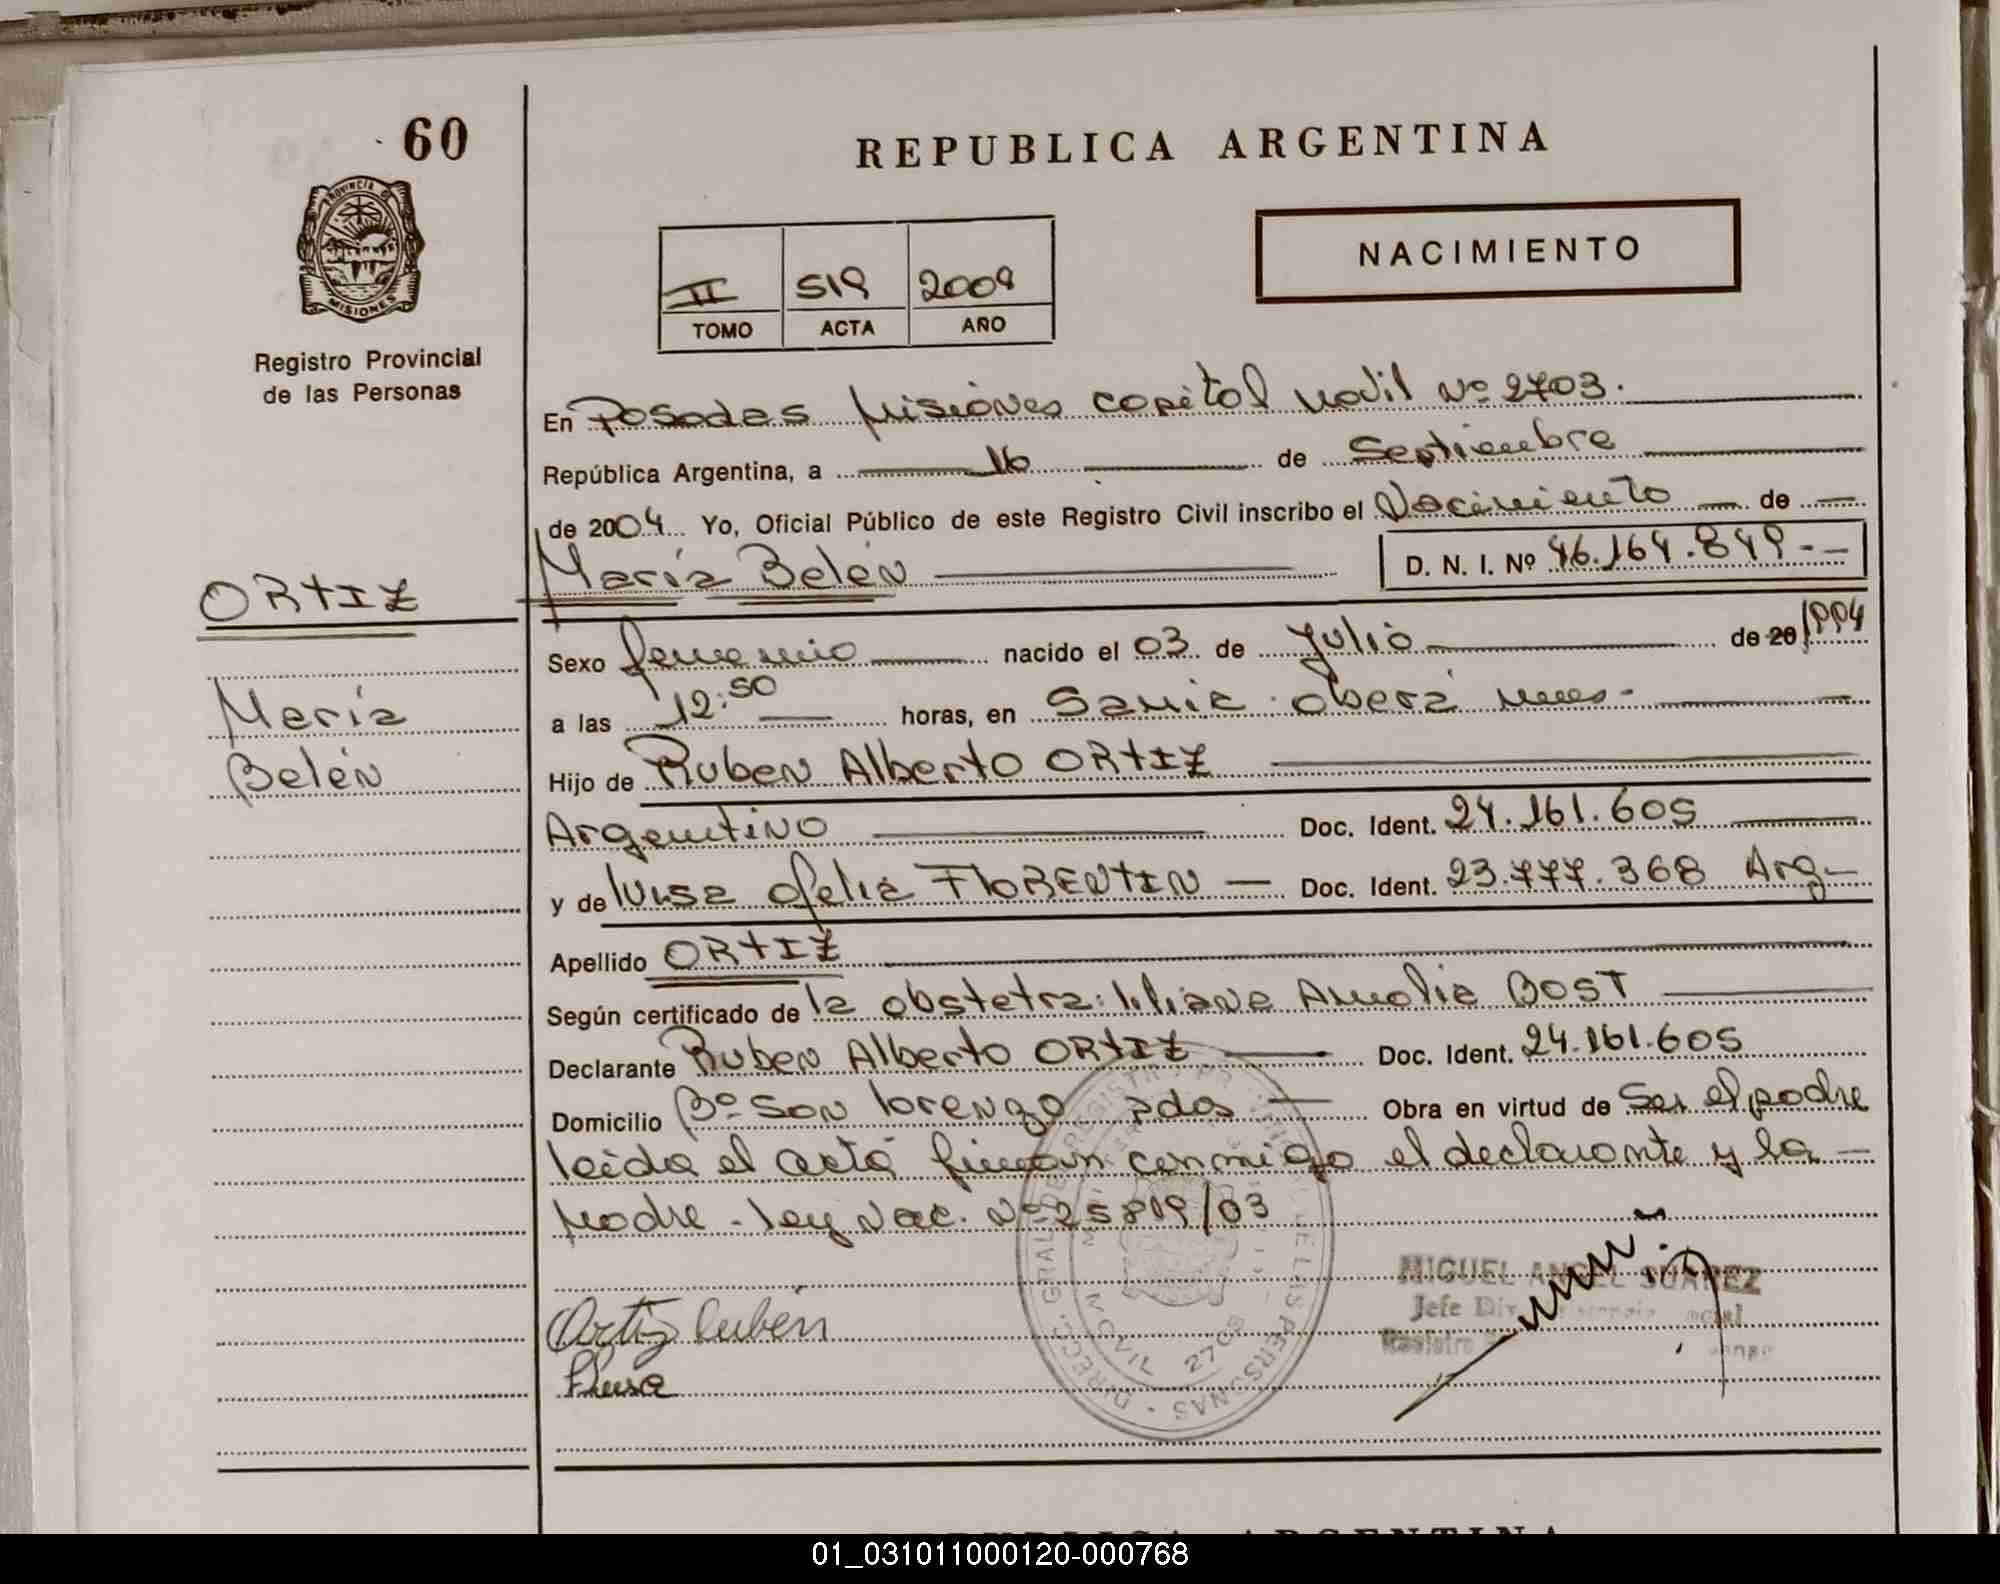 60
PROVINCIA DE
MISIONES
Registro Provincial
de las Personas
REPUBLICA ARGENTINA
NACIMIENTO
II 519 2004
TOMO ACTA AÑO
En Posadas Misiones capital Movil Nº 2703.
República Argentina, a 16 de Septiembre
de 2004 Yo, Oficial Público de este Registro Civil inscribo el Nacimiento de
María Belén D. N. I. Nº 46.164.849
ORTIZ
María
Belén
Sexo femenino nacido el 03 de Julio de 20 1994
a las 12:50 horas, en Samic Oberá Mnes
Hijo de Ruben Alberto ORTIZ
Argentino Doc. Ident. 24.161.605
y de luisa ofelia FlORENTIN Doc. Ident. 23.777.368 Arg
Apellido ORTIZ
Según certificado de la obstetra: liliana Amalia BOST
Declarante Ruben Alberto ORTIZ Doc. Ident. 24.161.605
Domicilio Bº San lorenzo pdas Obra en virtud de Ser el padre
leida el acta firman conmigo el declarante y la
Madre - ley Nac. Nº 25819/03
Ortiz Ruben
Luisa
MIGUEL ANGEL SUAREZ
Jefe Div.
Registro
MOVIL 2703
01_031011000120-000768